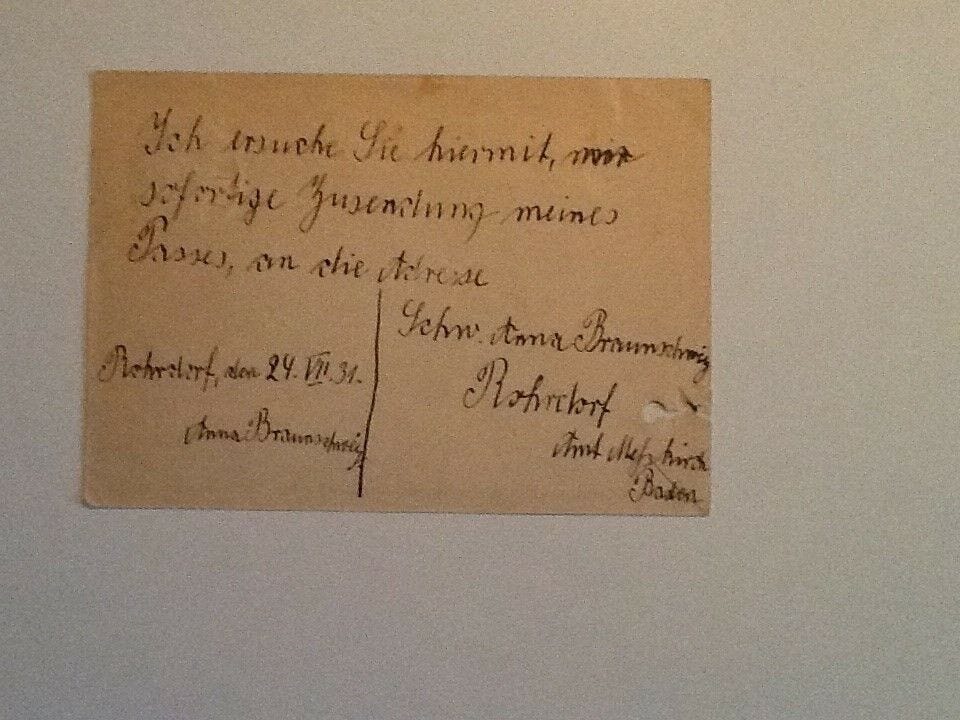 Ich ersuche Sie hiermit, um
sofortige Zusendung meines
Passes, an die Adresse
Schw. Anna Braunschweig
Rohrdorf
Amt Meßkirch
Baden
Rohrdorf, den 24. VII. 31.
Anna Braunschweig